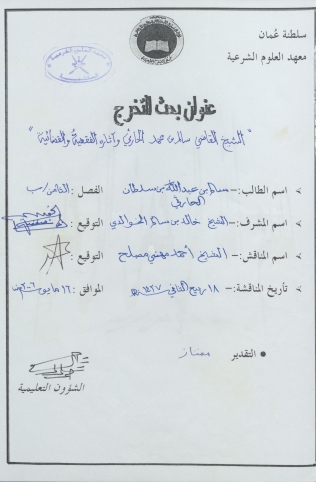 سلطنة عُمان
معهد العلوم الشرعية
عنوان بحث التخرج
"الشيخ القاضي سالم بن حمد الحارثي وآثاره الفقهية والقضائية"
اسم الطالب:- سالم بن عبدالله بن سلطان الحارثي الفصل: الثامن/ب
اسم المشرف:- الشيخ خالد بن سالم الخوالدي التوقيع:
اسم المناقش:- الشيخ أحمد مهني مصلح التوقيع:
تاريخ المناقشة:- ١٨ ربيع الثاني ١٤٢٧هـ الموافق: ١٦ مايو ٢٠٠٦م
التقدير ممتاز
الشؤون التعليمية